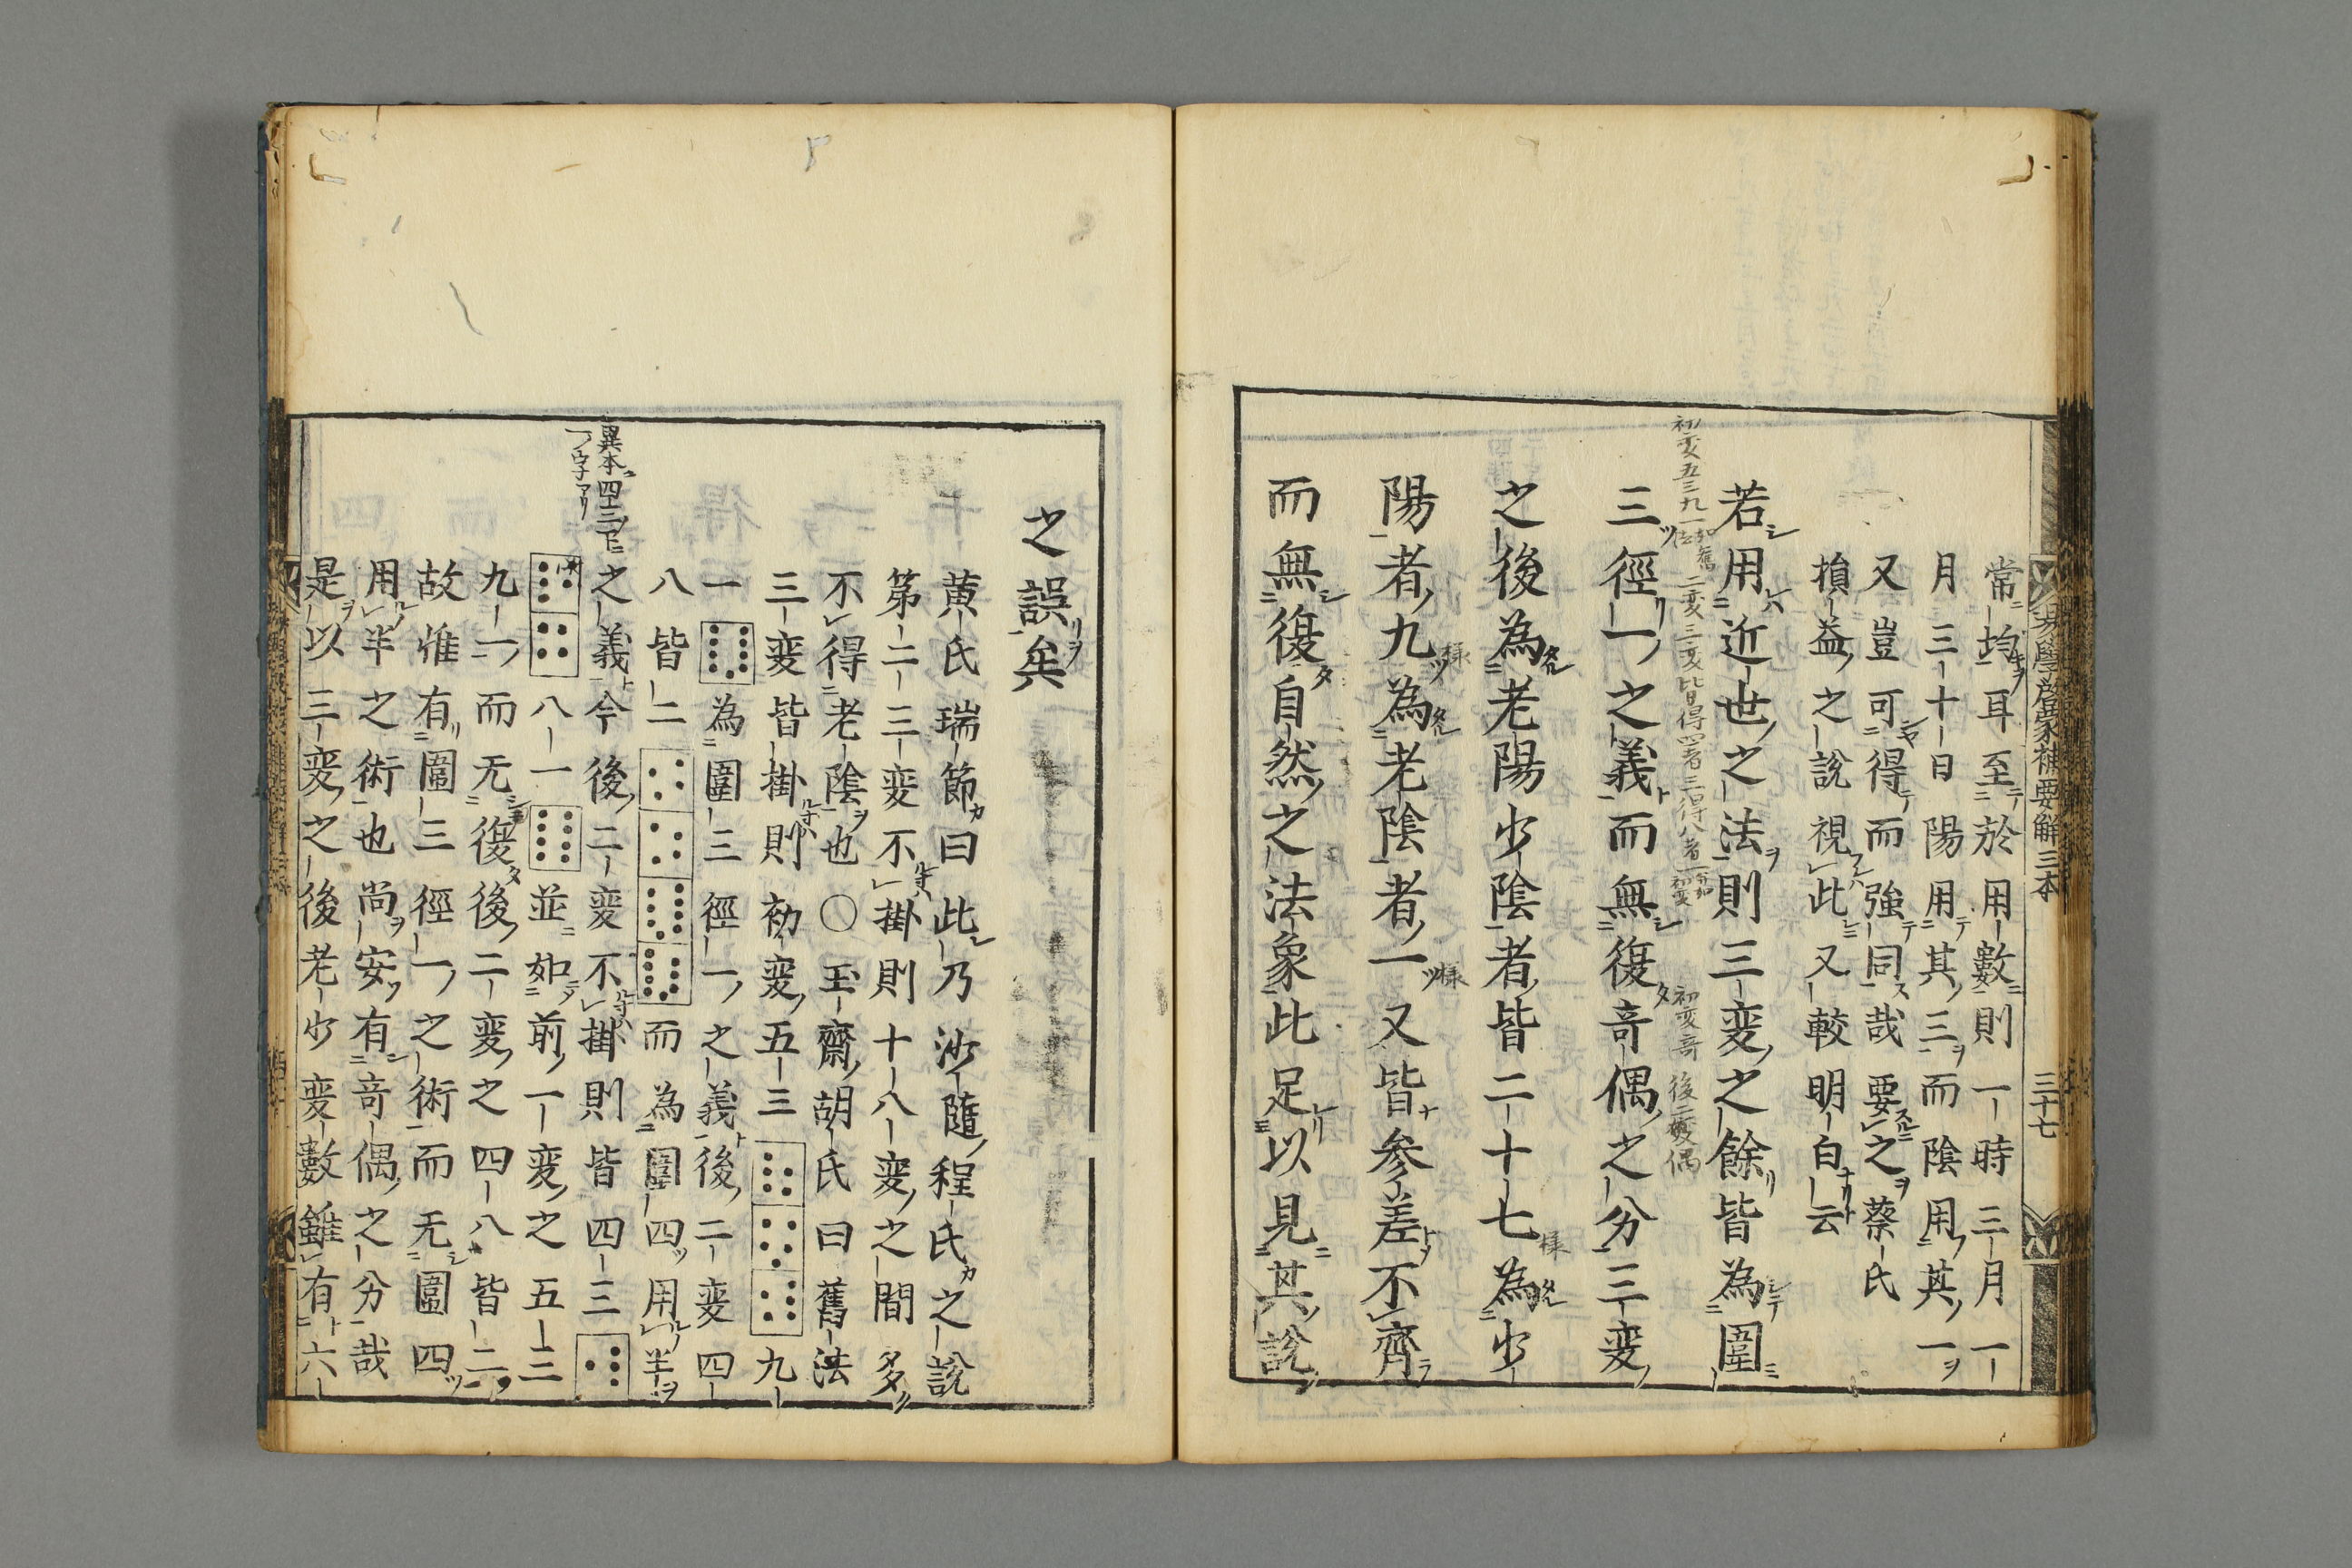 易學啓蒙補要解三本 三十七
常均耳至於用數則一時三月一
月三十日陽用其三而陰用其一
又豈可得而強同哉要之蔡氏
損益之說視此又較明白云
若用近世之法則三変之餘皆為圍
初変五三九一如舊二変三変皆得四者三得八者一
初変奇後二変偶
三徑一之義而無復奇偶之分三変
之後為老陽少陰者皆二十七為少
陽者九為老陰者一又皆参差不齊
而無復自然之法象此足以見其說
之誤矣
黄氏瑞節曰此乃沙隨程氏之說
第二三変不掛則十八変之間多
不得老陰也〇玉齋胡氏曰舊法
三変皆掛則初変五三九
一為圍三徑一之義後二変四
八皆二而為圍四用半
異本四三下ニ
一ノ字アリ
之義今後二変不掛則皆四三
八一並如前一変之五三
九一而无復後二変之四八皆二
故惟有圍三徑一之術而无圍四
用半之術也尚安有奇偶之分哉
是以三変之後老少変數雖有六